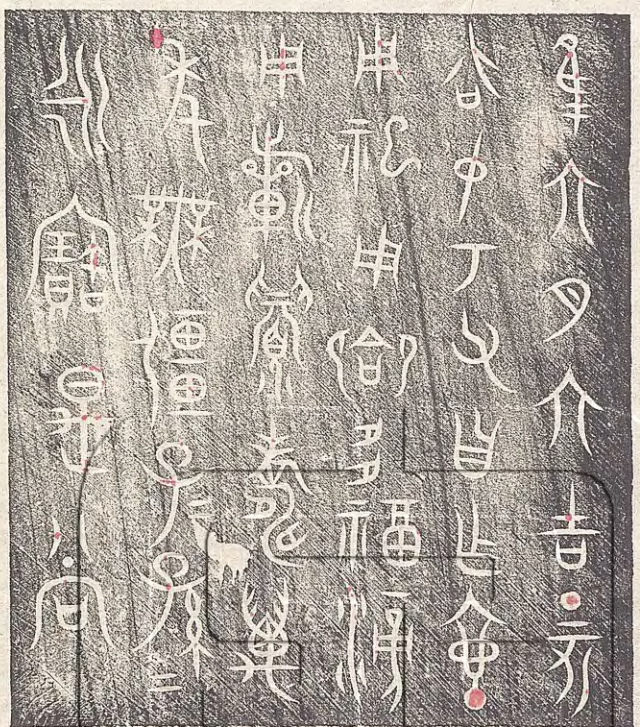 隹六月初吉丁亥
召中丂父自乍壺
用祀用鄉多福滂
用蘄眉壽萬
年無疆子孫=
永寶是尚